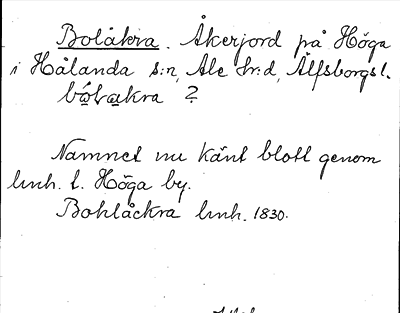 Bolåkra. Åkerjord på Höga
i Hålanda s:n, Ale hr:d, Älfsborgs l.
bólakra ?
Namnet nu känt blott genom
lmh. t. Höga by.
Bohlåckra lmh. 1830.